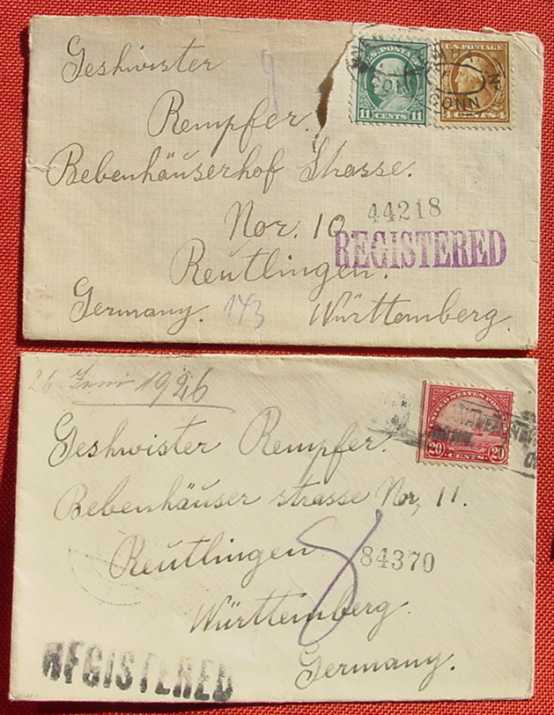 U.S. POSTAGE
11 CENTS 11
U.S. POSTAGE
CONN
Geshwister
Rempfer.
Bebenhäuserhof Strasse.
Nor. 10
44218
REGISTERED
Reutlingen.
Germany. 143 Württemberg.
26 Juni 1926
UNITED STATES POSTAGE
20 CENTS 20
Geshwister Rempfer.
Bebenhäuser strasse Nor, 11.
Reutlingen
84370
8
Württemberg.
REGISTERED
Germany.